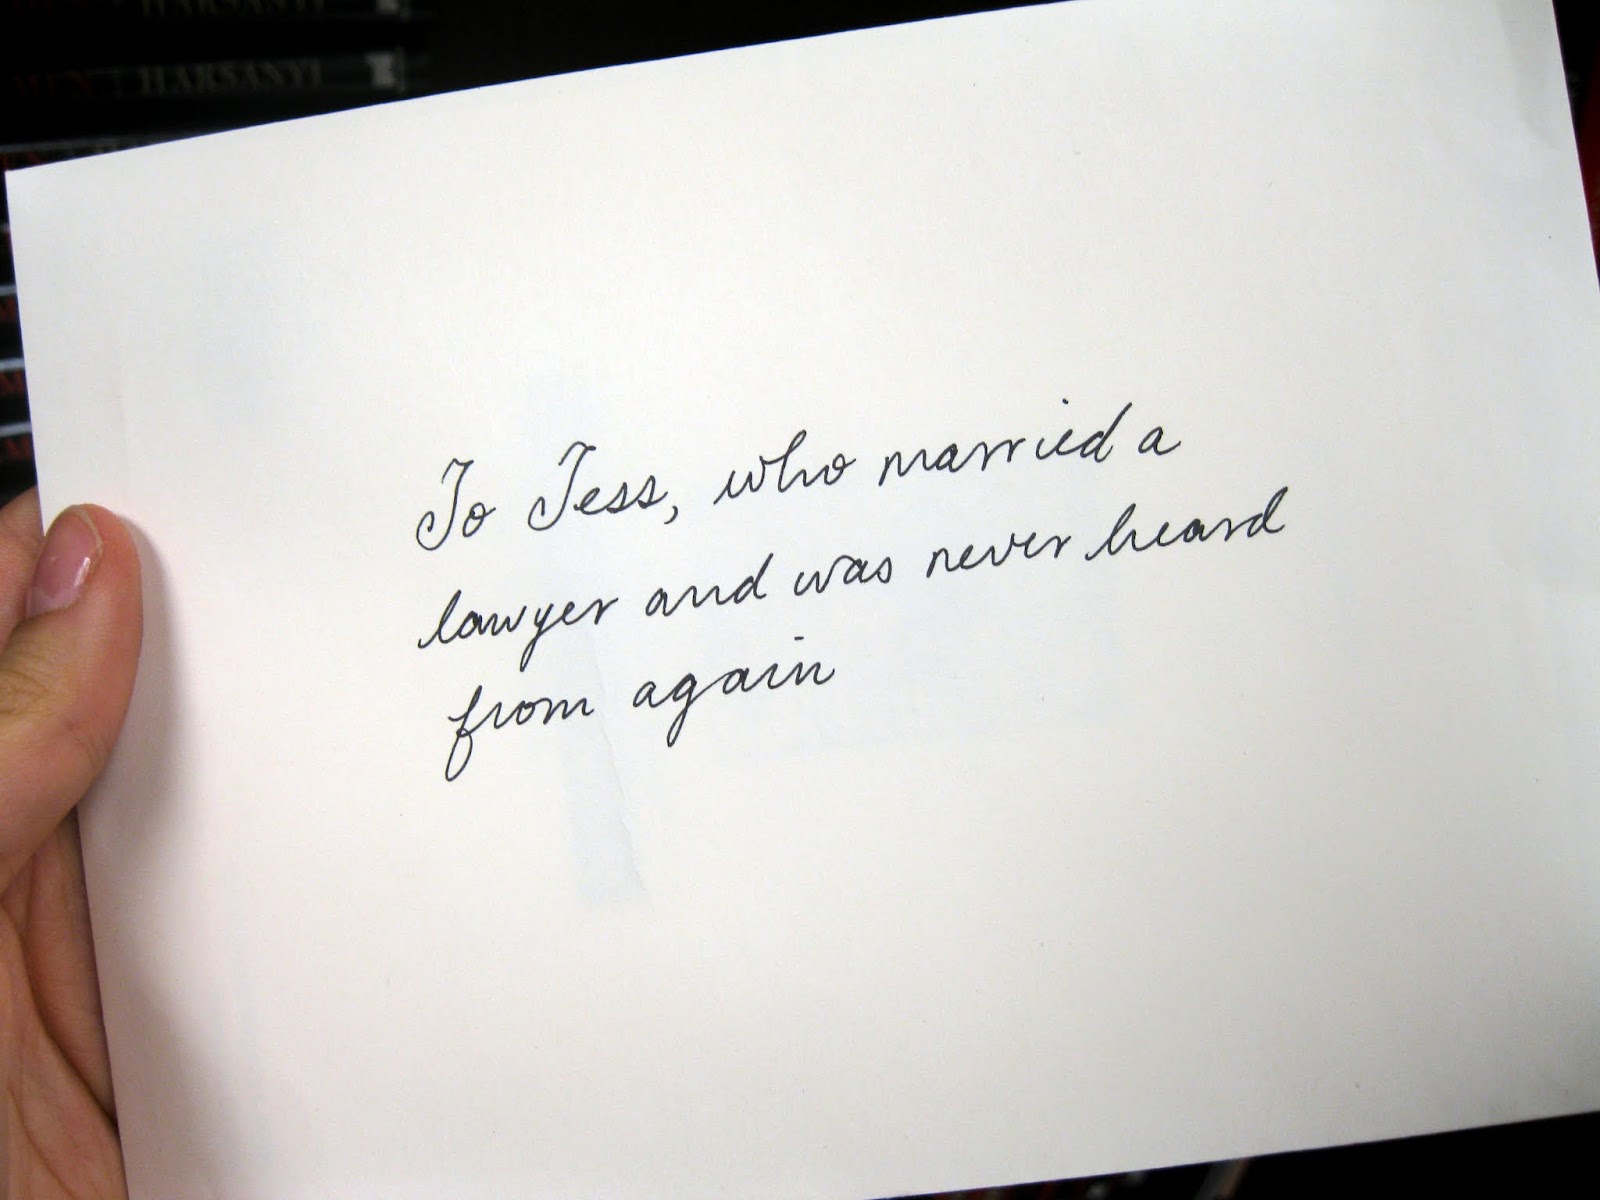 HARSANYI
To Tess, who married a
lawyer and was never heard
from again